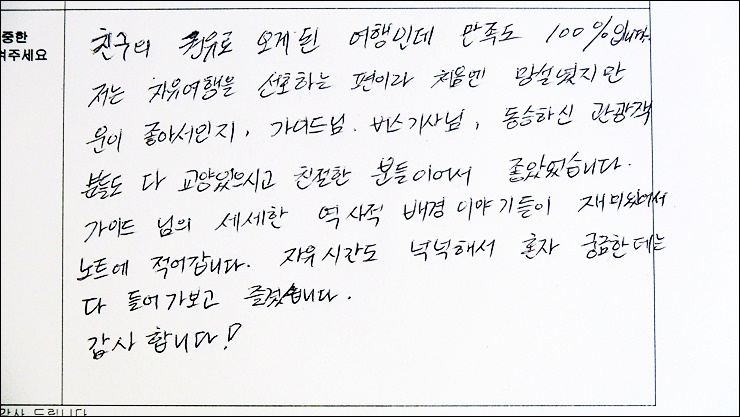 중한
겨주세요
친구의 권유로 오게된 여행인데 만족도 100%입니다.
저는 자유여행을 선호하는 편이라 처음엔 망설였지만
운이 좋아서인지, 가이드님. 버스기사님, 동승하신 관광객
분들도 다 교양있으시고 친절한 분들이어서 좋았었습니다.
가이드 님의 세세한 역사적 배경 이야기들이 재미있어서
노트에 적어갑니다. 자유시간도 넉넉해서 혼자 궁금한데는
다 들어가보고 즐겼습니다.
감사합니다!
감사 드립니다